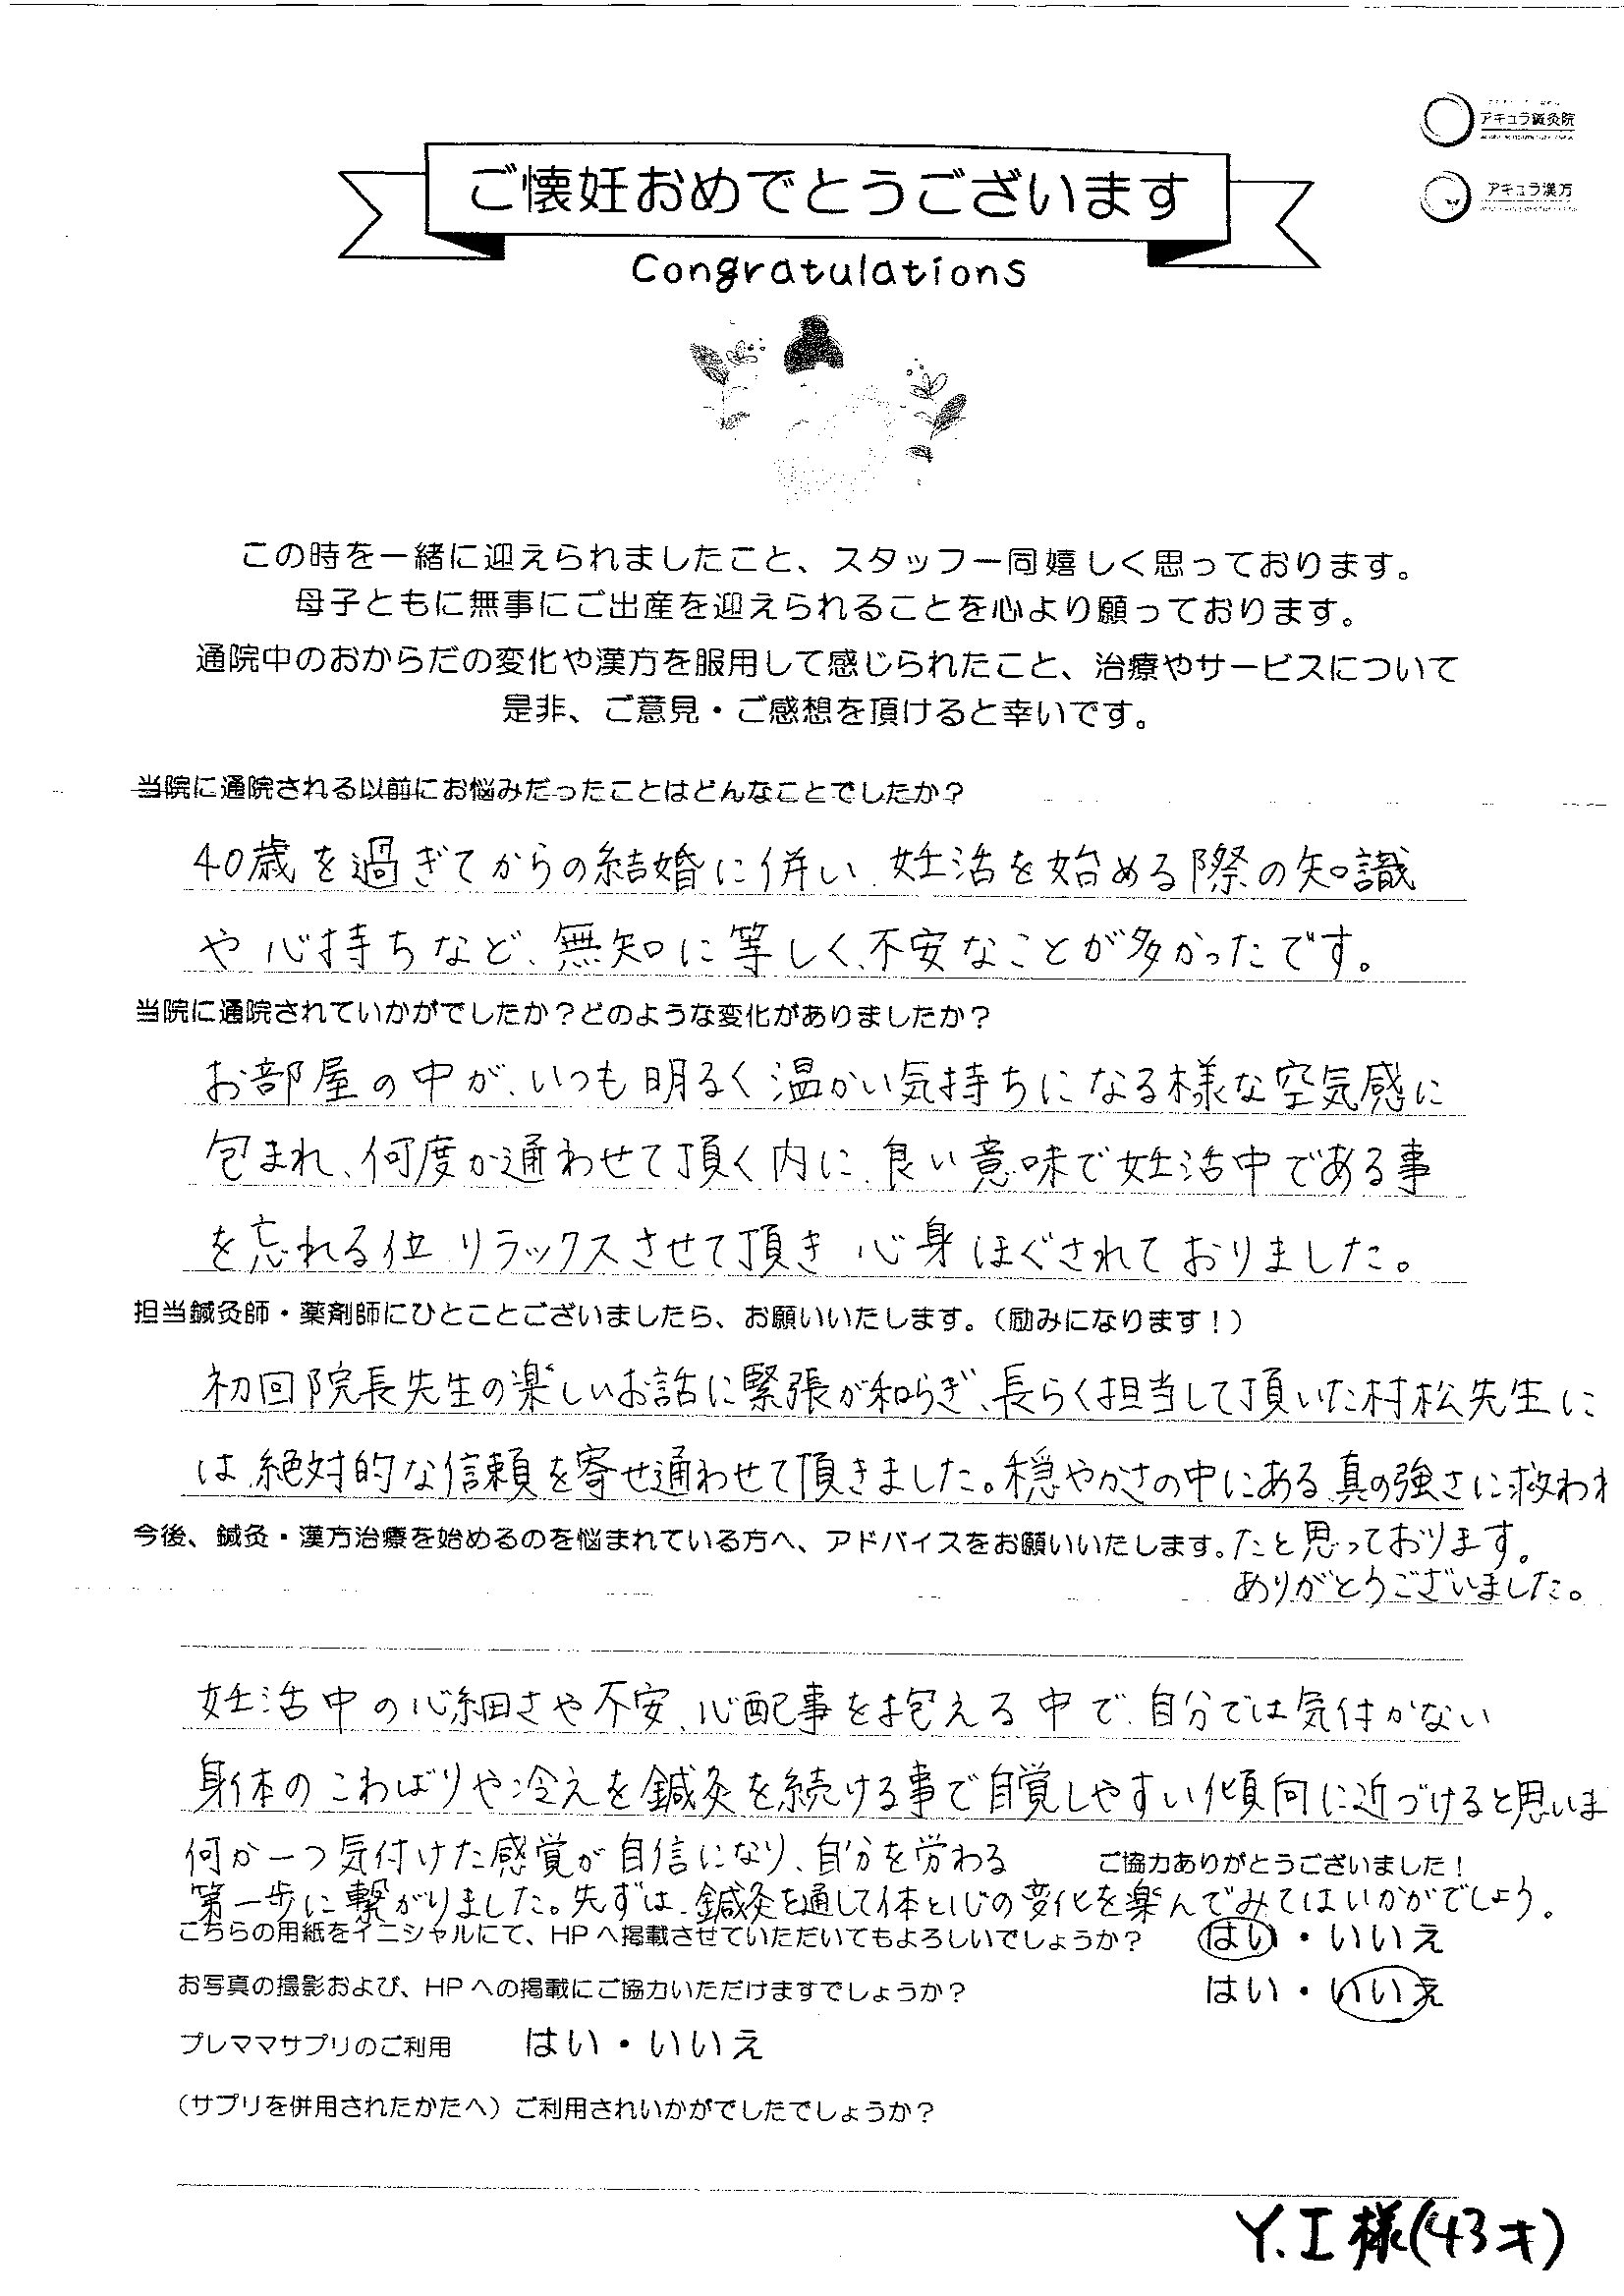 アキュラ鍼灸院
アキュラ漢方
ご懐妊おめでとうございます
Congratulations
この時を一緒に迎えられましたこと、スタッフ一同嬉しく思っております。
母子ともに無事にご出産を迎えられることを心より願っております。
通院中のおからだの変化や漢方を服用して感じられたこと、治療やサービスについて
是非、ご意見・ご感想を頂けると幸いです。
当院に通院される以前にお悩みだったことはどんなことでしたか？
40歳を過ぎてからの結婚に併い、妊活を始める際の知識
や心持ちなど、無知に等しく、不安なことが多かったです。
当院に通院されていかがでしたか？どのような変化がありましたか？
お部屋の中が、いつも明るく温かい気持ちになる様な空気感に
包まれ、何度か通わせて頂く内に、良い意味で妊活中である事
を忘れる位、リラックスさせて頂き心身ほぐされておりました。
担当鍼灸師・薬剤師にひとことございましたら、お願いいたします。（励みになります！）
初回院長先生の楽しいお話に緊張が和らぎ、長らく担当して頂いた村松先生に
は、絶対的な信頼を寄せ通わせて頂きました。穏やかさの中にある、真の強さに救われ
今後、鍼灸・漢方治療を始めるのを悩まれている方へ、アドバイスをお願いいたします。たと思っております。
ありがとうございました。
妊活中の心細さや不安、心配事を抱える中で、自分では気付かない
身体のこわばりや冷えを鍼灸を続ける事で自覚しやすい傾向に近づけると思いま
何か一つ気付けた感覚が自信になり、自分を労わる
ご協力ありがとうございました！
第一歩に繋がりました。先ずは、鍼灸を通して体と心の変化を楽んでみてはいかがでしょう。
こちらの用紙をイニシャルにて、HPへ掲載させていただいてもよろしいでしょうか？ はい・いいえ
お写真の撮影および、HPへの掲載にご協力いただけますでしょうか？ はい・いいえ
プレママサプリのご利用 はい・いいえ
（サプリを併用されたかたへ）ご利用されいかがでしたでしょうか？
Y.I様(43才)